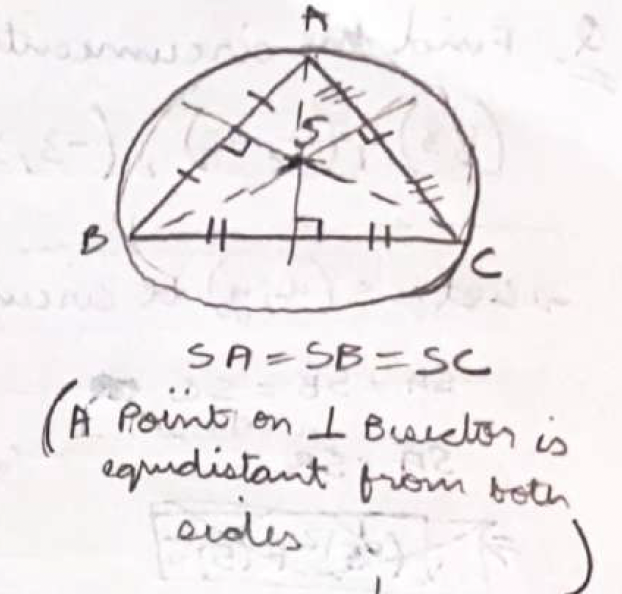 A
S
B
C
SA = SB = SC
(A Point on ⊥ Bisector is
equidistant from both
sides)